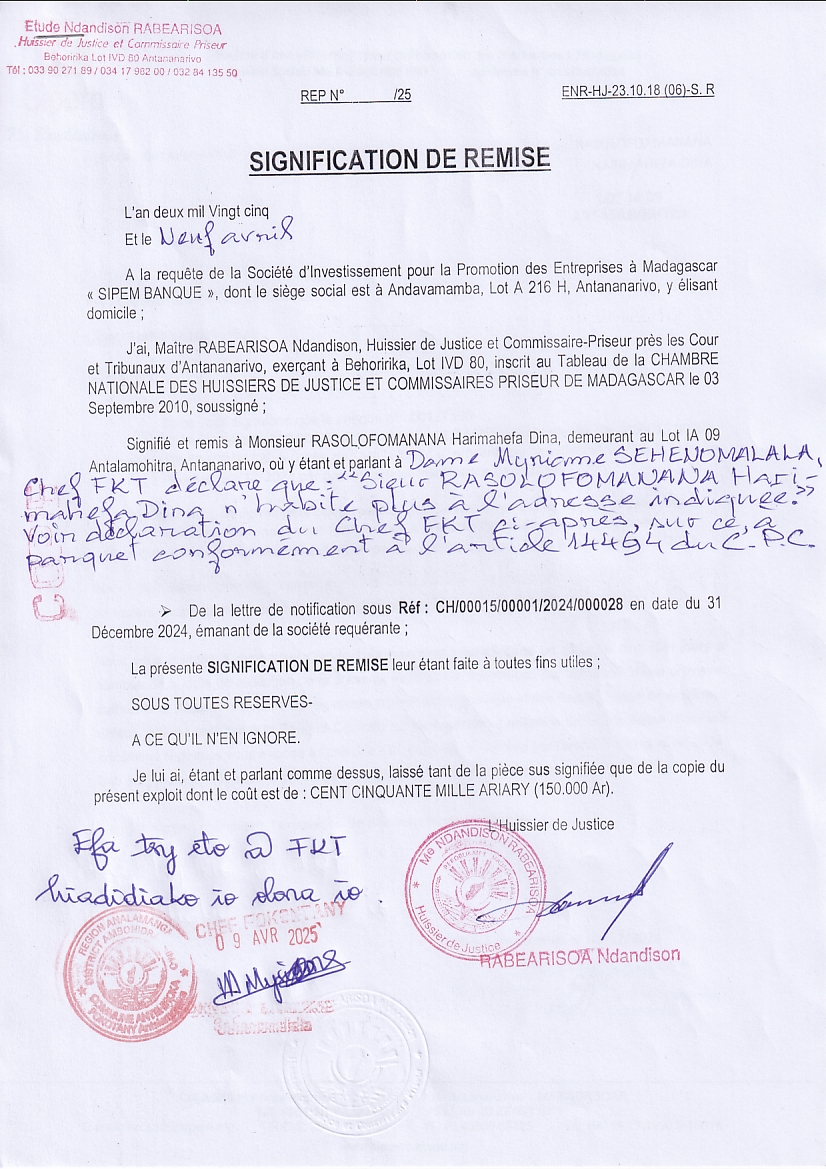 Etude Ndandison RABEARISOA
Huissier de Justice et Commissaire Priseur
Behoririka Lot IVD 80 Antananarivo
Tél : 033 90 271 89 / 034 17 982 00 / 032 84 135 50
REP N° ______/25
ENR-HJ-23.10.18 (06)-S. R
SIGNIFICATION DE REMISE
L'an deux mil Vingt cinq
Et le Neuf avril
A la requête de la Société d'Investissement pour la Promotion des Entreprises à Madagascar
« SIPEM BANQUE », dont le siège social est à Andavamamba, Lot A 216 H, Antananarivo, y élisant
domicile ;
J'ai, Maître RABEARISOA Ndandison, Huissier de Justice et Commissaire-Priseur près les Cour
et Tribunaux d'Antananarivo, exerçant à Behoririka, Lot IVD 80, inscrit au Tableau de la CHAMBRE
NATIONALE DES HUISSIERS DE JUSTICE ET COMMISSAIRES PRISEUR DE MADAGASCAR le 03
Septembre 2010, soussigné ;
Signifié et remis à Monsieur RASOLOFOMANANA Harimahefa Dina, demeurant au Lot IA 09
Antalamohitra, Antananarivo, où y étant et parlant à Dame Myriame SEHENOMALALA,
Chef FKT déclare que : "Sieur RASOLOFOMANANA Hari-
mahefa Dina n'habite plus à l'adresse indiquée.»
Voir déclaration du Chef FKT ci-après, sur ce, a
parquet conformément à l'article du C.P.C.
➢ De la lettre de notification sous Réf : CH/00015/00001/2024/000028 en date du 31
Décembre 2024, émanant de la société requérante ;
La présente SIGNIFICATION DE REMISE leur étant faite à toutes fins utiles ;
SOUS TOUTES RESERVES-
A CE QU'IL N'EN IGNORE.
Je lui ai, étant et parlant comme dessus, laissé tant de la pièce sus signifiée que de la copie du
présent exploit dont le coût est de : CENT CINQUANTE MILLE ARIARY (150.000 Ar).
L'Huissier de Justice
Efa tsy eto @ FKT
hiadidiako io olona io.
Me NDANDISON RABEARISOA
Huissier de Justice
RABEARISOA Ndandison
CHEF FOKONTANY
09 AVR 2025
REGION ANALAMANGA